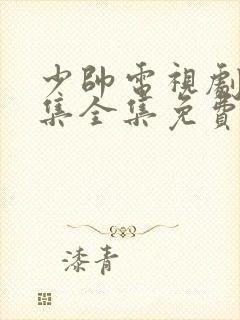 少帥電視劇
集全集免費
漆青